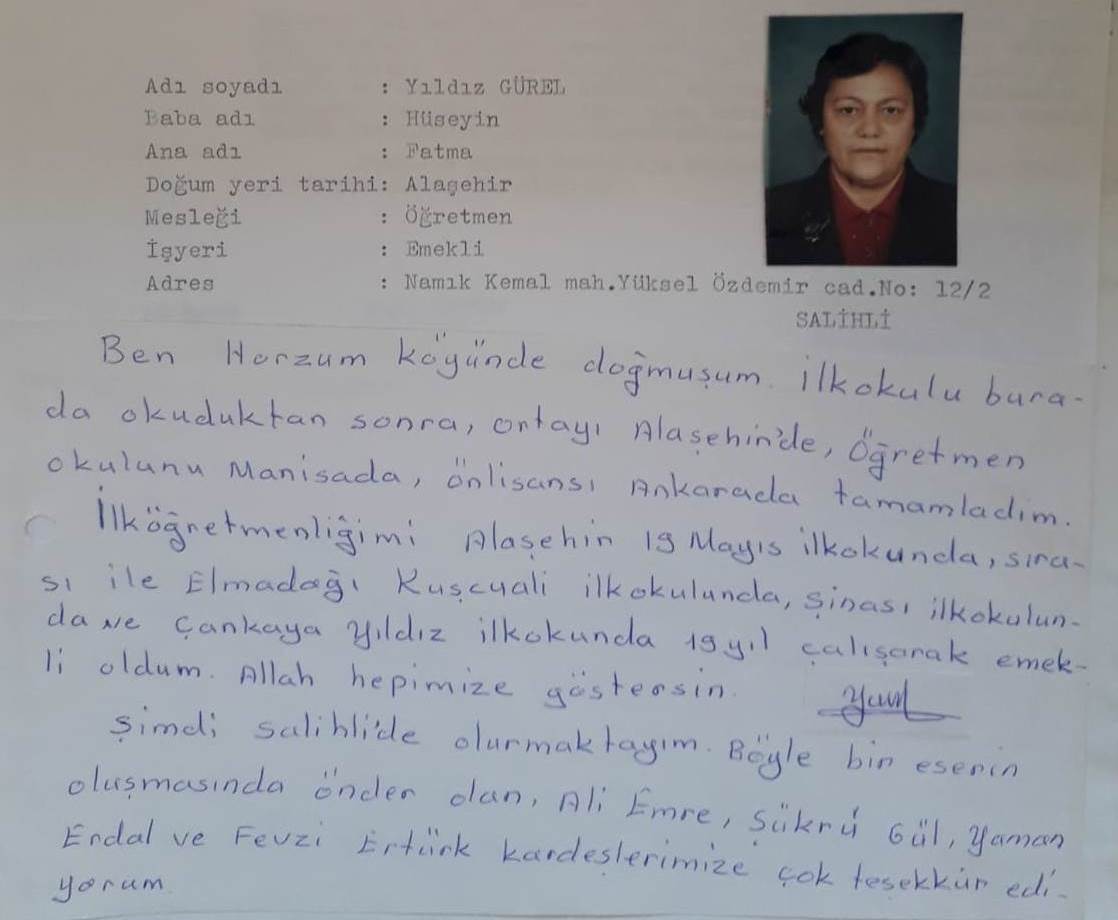 Adı soyadı : Yıldız GÜREL
Baba adı : Hüseyin
Ana adı : Fatma
Doğum yeri tarihi: Alaşehir
Mesleği : Öğretmen
İşyeri : Emekli
Adres : Namık Kemal mah.Yüksel Özdemir cad.No: 12/2
SALİHLİ
Ben Horzum köyünde doğmuşum. İlkokulu bura-
da okuduktan sonra, ortayı Alaşehir'de, Öğretmen
okulunu Manisada, önlisansı Ankarada tamamladım.
İlköğretmenliğimi Alaşehir 19 Mayıs ilkokunda, sıra-
sı ile Elmadağı Kuşcuali ilkokulunda, Şinası ilkokulun-
da ve Çankaya Yıldız ilkokunda 19 yıl çalışarak emek-
li oldum. Allah hepimize göstersin.
Şimdi Salihli'de olurmaktayım. Böyle bir eserin
oluşmasında önder olan, Ali Emre, Şükrü Gül, Yaman
Erdal ve Fevzi Ertürk kardeşlerimize çok teşekkür edi-
yorum.